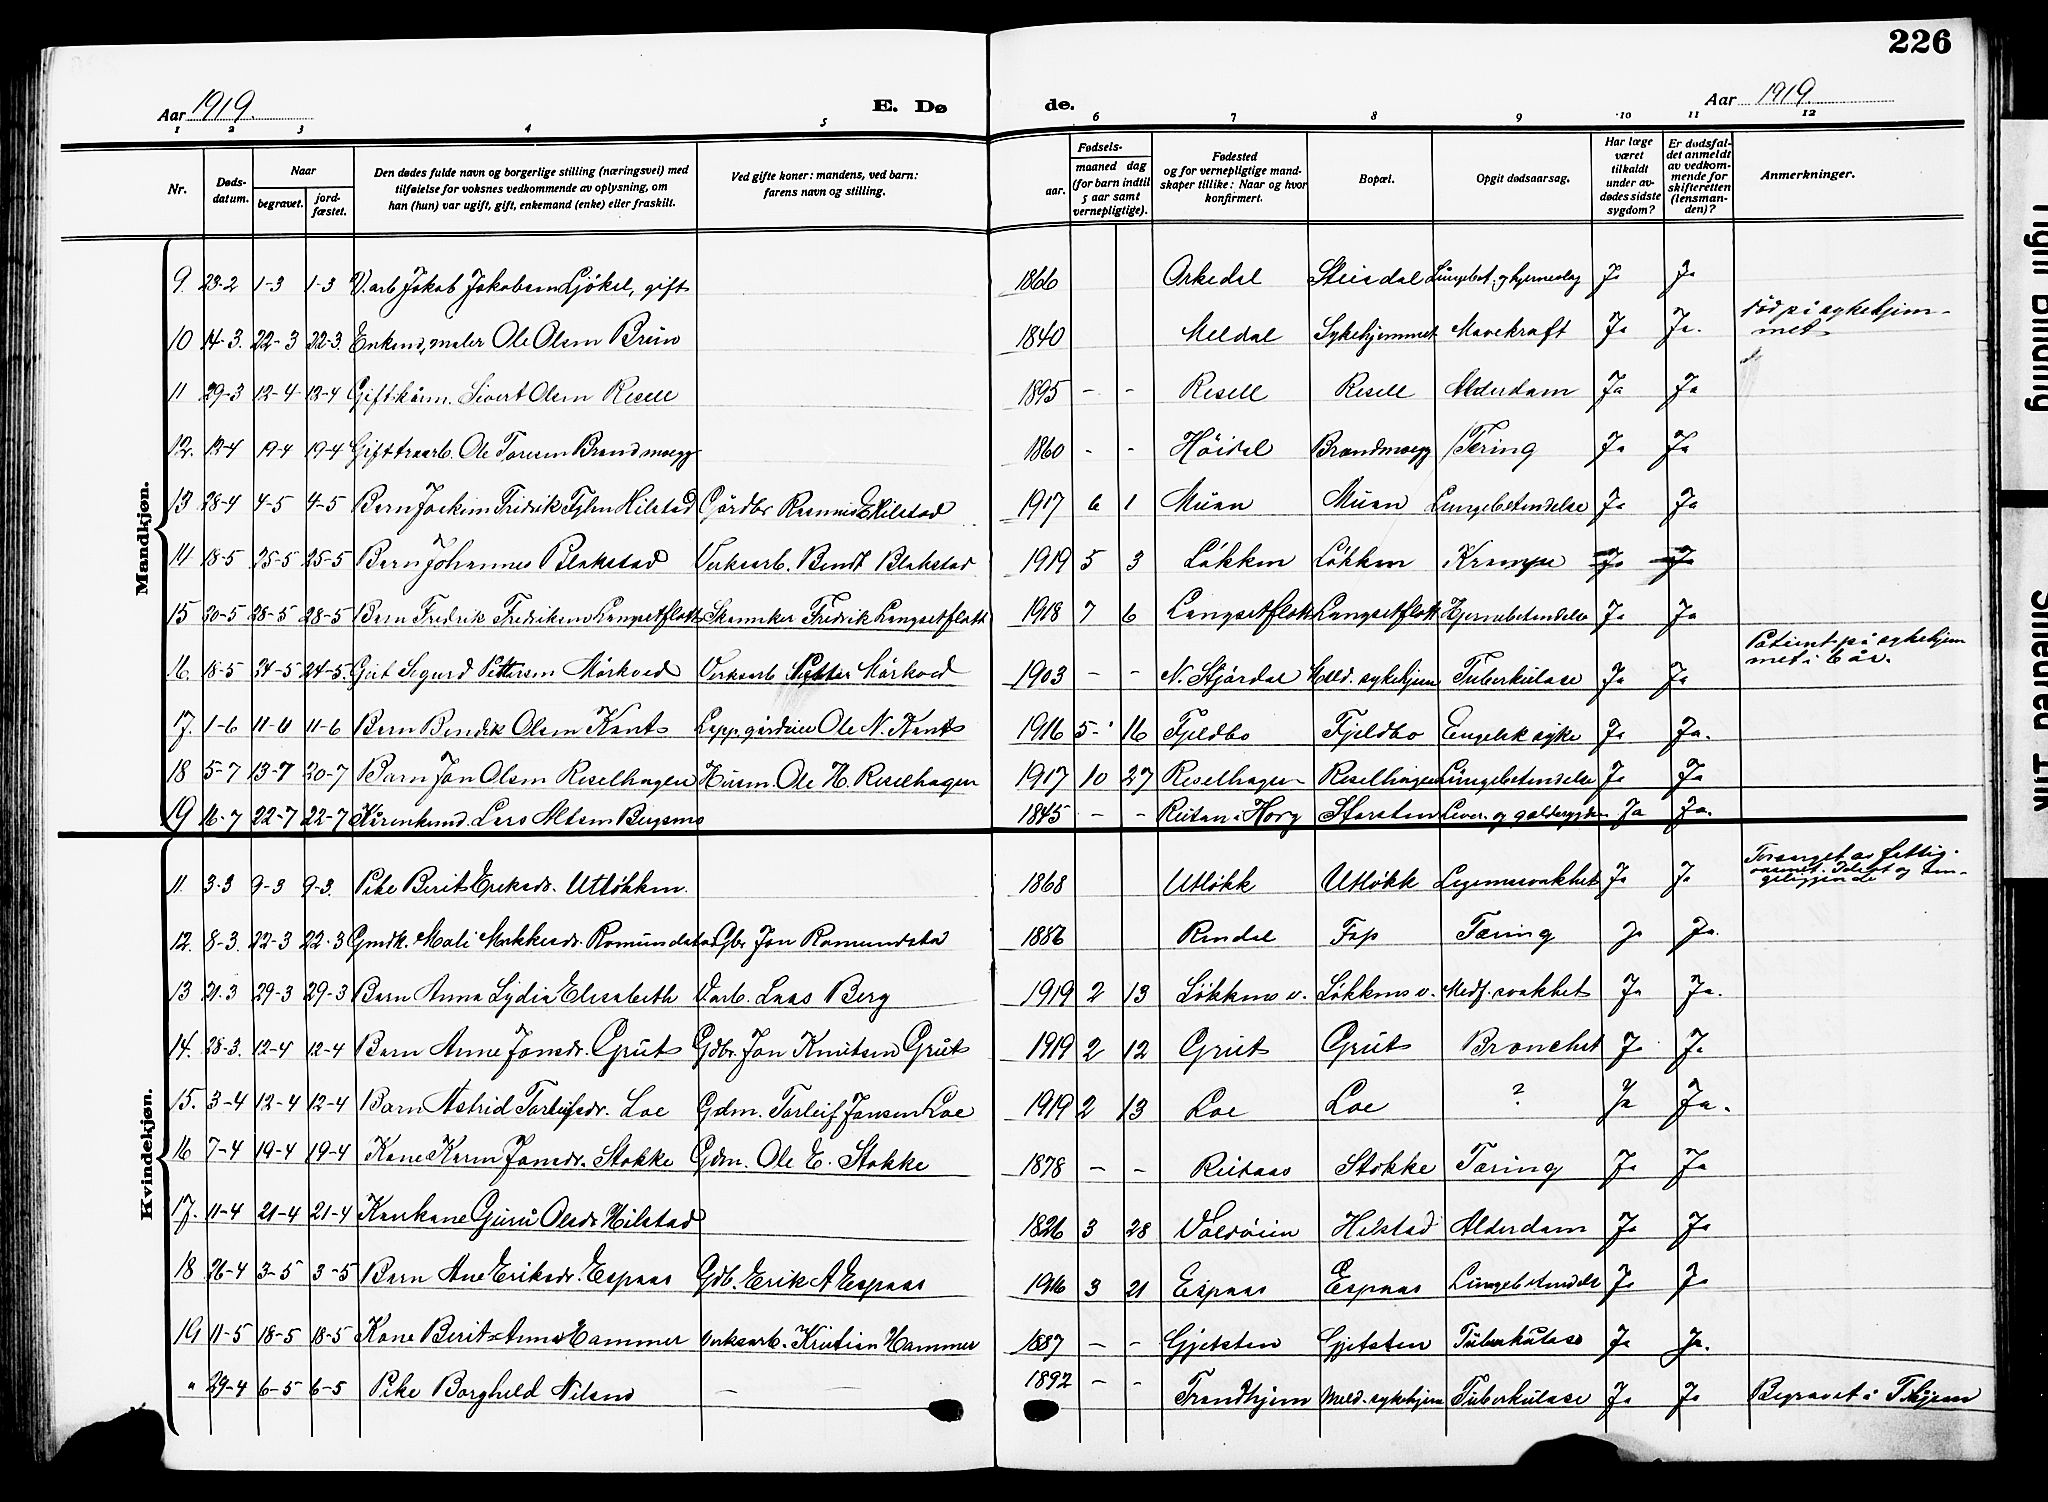 226
Aar 1919.
E. Dø
de.
Aar 1919.
1 2 3 4 5 6 7 8 9 10 11 12
Nr.
Døds-
datum.
Naar
begravet.
jord-
fæstet.
Den dødes fulde navn og borgerlige stilling (næringsvei) med
tilføielse for voksnes vedkommende av oplysning, om
han (hun) var ugift, gift, enkemand (enke) eller fraskilt.
Ved gifte koner: mandens, ved barn:
farens navn og stilling.
Fødsels-
aar.
maaned dag
(for barn indtil
5 aar samt
vernepligtige).
Fødested
og for vernepligtige mand-
skaper tillike: Naar og hvor
konfirmert.
Bopæl.
Opgit dødsaarsag.
Har læge
været
tilkaldt
under av-
dødes sidste
sygdom?
Er dødsfal-
det anmeldt
av vedkom-
mende for
skifteretten
(lensman-
den)?
Anmerkninger.
Mandkjøn.
9. 28-2 1-3 1-3 V. arb Jakob Jakobsen Ljökel, gift 1866 Orkedal Steisdal Lungebet. og hjerneslag Ja Ja
død på sykehjem-
10 14-3. 22-3 22-3. Enkemd, maler Ole Olsen Brun 1840 Meldal Sykehjemmet Mavekræft Ja Ja. met
11 29-3 12-4 12-4 Gift kårm. Sivert Olsen Resell 1895 - - Resell Resell Alderdom Ja Ja
12. 12-4 19-4 19-4 Gift traarb. Ole Toresen Brandmoegg 1860 - - Höidal Brandmoegg Tæring Ja Ja
13 28-4 4-5 4-5 Barn Joakim Fridrik Hilstad Gårdbr Rasmus E Hilstad 1917 6 1 Muan Muan Lungebetendelse Ja Ja
14 18-5 25-5 25-5 Barn Johannes Blakstad Verksarb. Bendt Blakstad 1919 5 3 Løkken Løkken Krampe Ja Ja
15 20-5 28-5 28-5 Barn Fredrik Fredriksen Langsetflott Skomker Fredrik Langsetflott 1918 7 6 Langsetflott Langsetflott Hjernebetendelse Ja Ja
Patient på sykehjem
16. 18-5 24-5 24-5. Gut Sigurd Pettersen Mörkved Verksarb Petter Mörkved 1903 - - N. Stjördal Meld. sykehjem Tuberkulose Ja Ja met i 6 år.
17. 1-6 11-6 11-6 Barn Bendik Olsen Kant Lappgårdeier Ole N. Kant 1916 5- 16 Fjeldbo Fjeldbo Engelsk syke Ja Ja.
18 5-7 13-7 20-7 Barn Jon Olsen Reselhagen Husm. Ole H. Reselhagen 1917 10 27 Reselhagen Reselhagen Lungebetendelse Ja Ja
19 16-7 22-7 22-7 Kårenkemd. Lars Bergsmo 1845 - - Reitan i Horg Storsten Lever- og galdesygdom Ja Ja.
Kvindekjøn.
11. 3-3 9-3 9-3. Pike Berit Eriksdr. Utløkken. 1868 Utløkk Utløkk Legemssvakhet Ja Ja
Forsørget av fattig-
væsenet. Idiot og sen-
geliggende
12. 8-3. 22-3 22-3 Gmdk. Mali Romundstad Gbr Jon Romundstad 1886 Rindal Fop Tæring Ja Ja.
13 21-3 29-3 29-3 Barn Anna Lydia Elisabeth Varb. Laas Berg 1919 2 13 Løkkens v. Løkkens v. Medf. svakhet Ja Ja.
14. 28-3. 12-4 12-4 Barn Anne Jonsdr. Grut Gdbr. Jon Knutsen Grut 1919 2 12 Grut Grut Bronchit Ja Ja
15. 3-4 12-4 12-4 Barn Astrid Torleifsdr. Loe Gdm. Torleif Jonsen Loe 1919 2 13 Loe Loe ? Ja Ja.
16 7-4 19-4 19-4 Kone Karen Jonsdr. Stokke Gdm. Ole E. Stokke 1878 - - Reitaas Stokke Tæring Ja Ja
17. 11-4 21-4 21-4 Kårkone Guru Olsdr Hilstad 1826 3 28 Voldöien Hilstad Alderdom Ja Ja
18 26-4 3-5 3-5 Barn Ane Eriksdr. Espaas Gdb. Erik A Espaas 1916 3 21 Espaas Espaas Lungebetendelse Ja Ja
19 11-5 18-5 18-5 Kone Berit Anna Hammer Verksarb. Kristian Hammer 1887 - - Gjetsten Gjetsten Tuberkulose Ja Ja.
" 29-4 6-5 6-5 Pike Borghild Nilsen - - 1892 - - Trondhjem Meld. sykehjem Tuberkulose Ja Ja Begravet i T.hjem